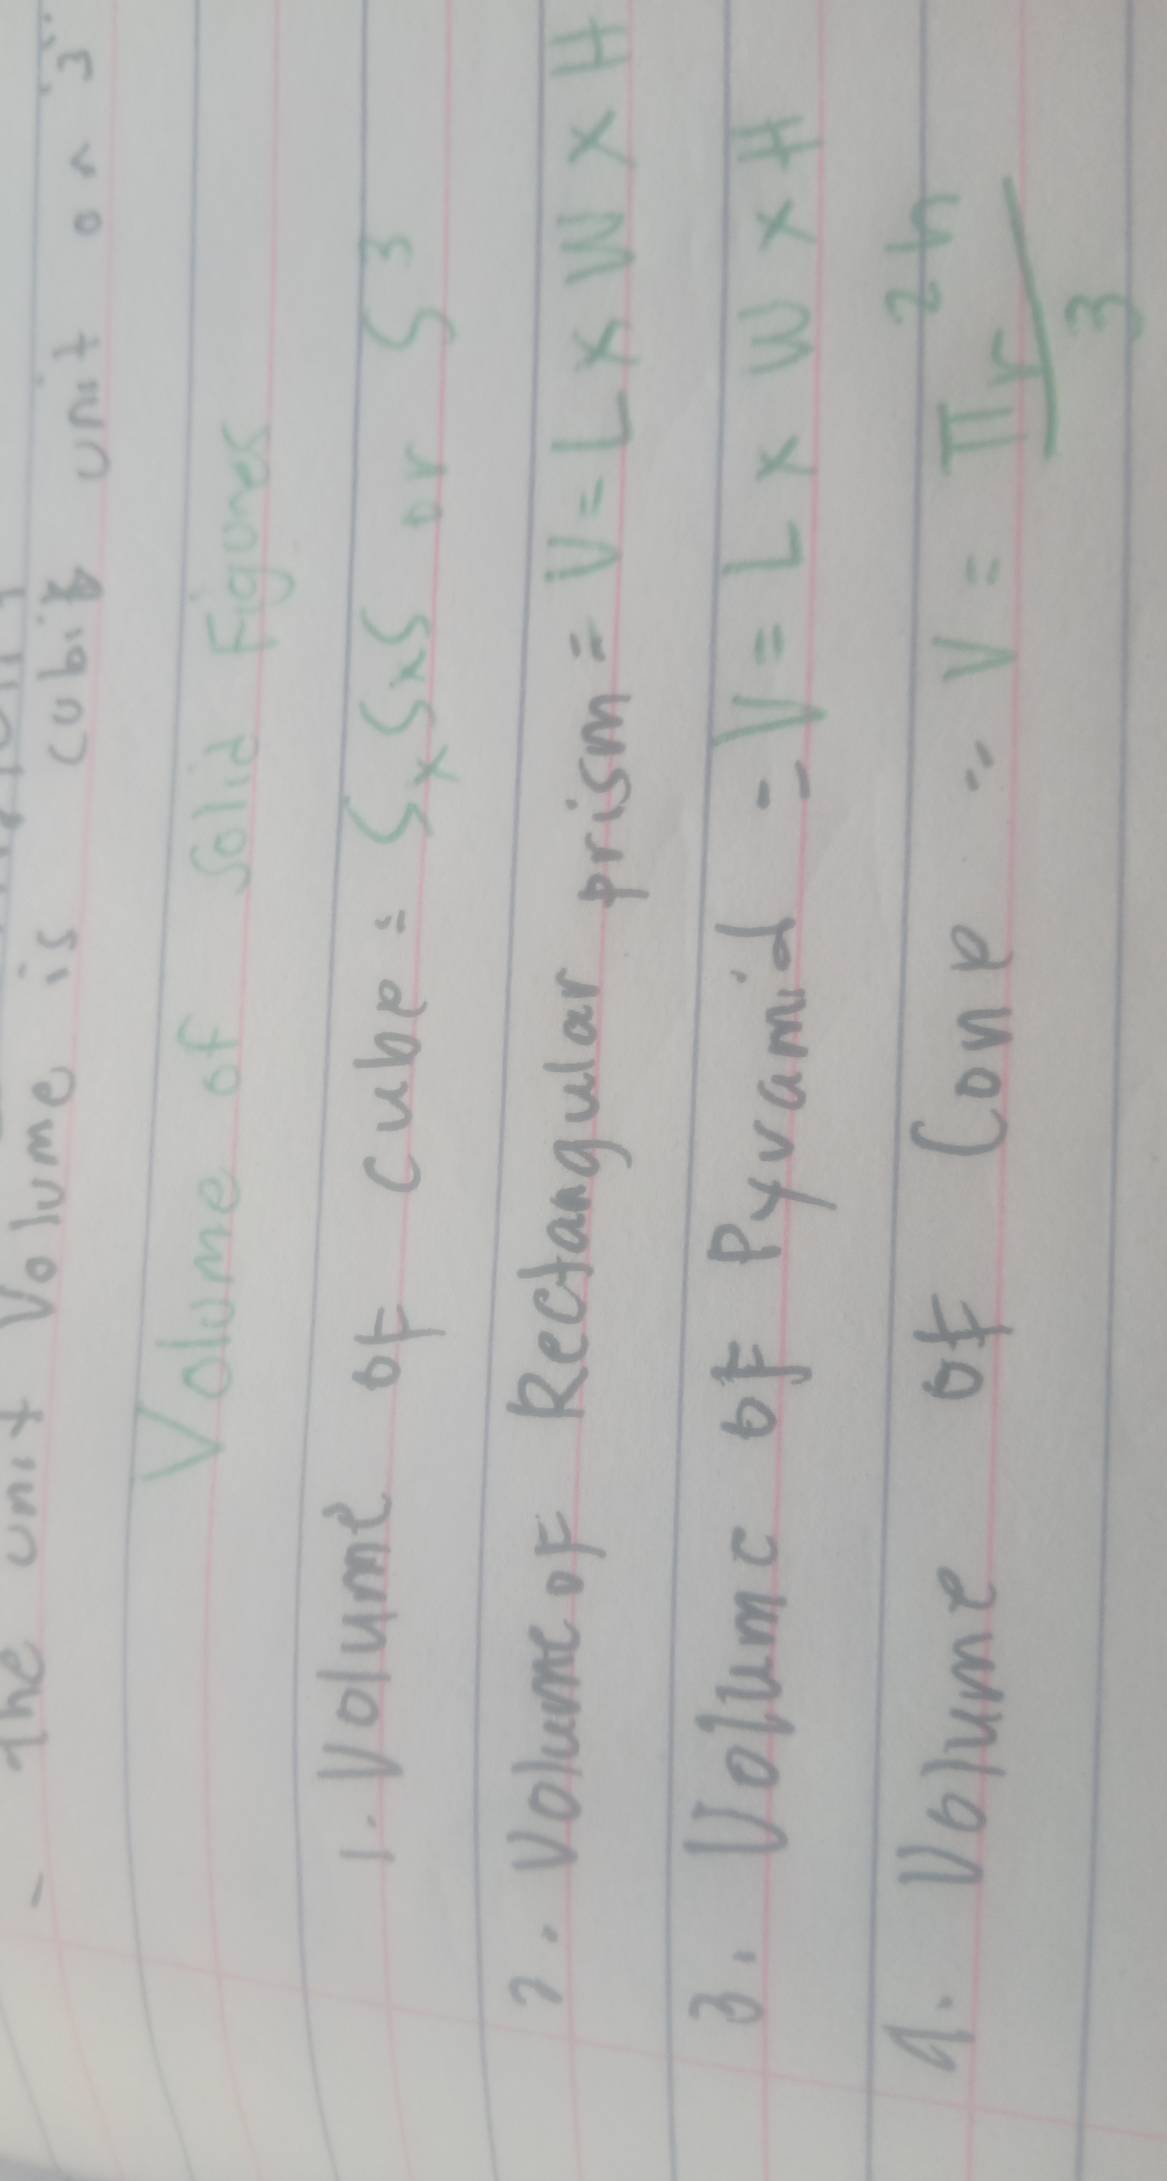 - The unit Volume is cubic unit or 3
Volume of Solid Figures
1. Volume of cube = S x S x S or S³
2. Volume of Rectangular prism = V = L x W x H
3. Volume of Pyramid = V = L x W x H
4. Volume of Cone = V = πr²h
3